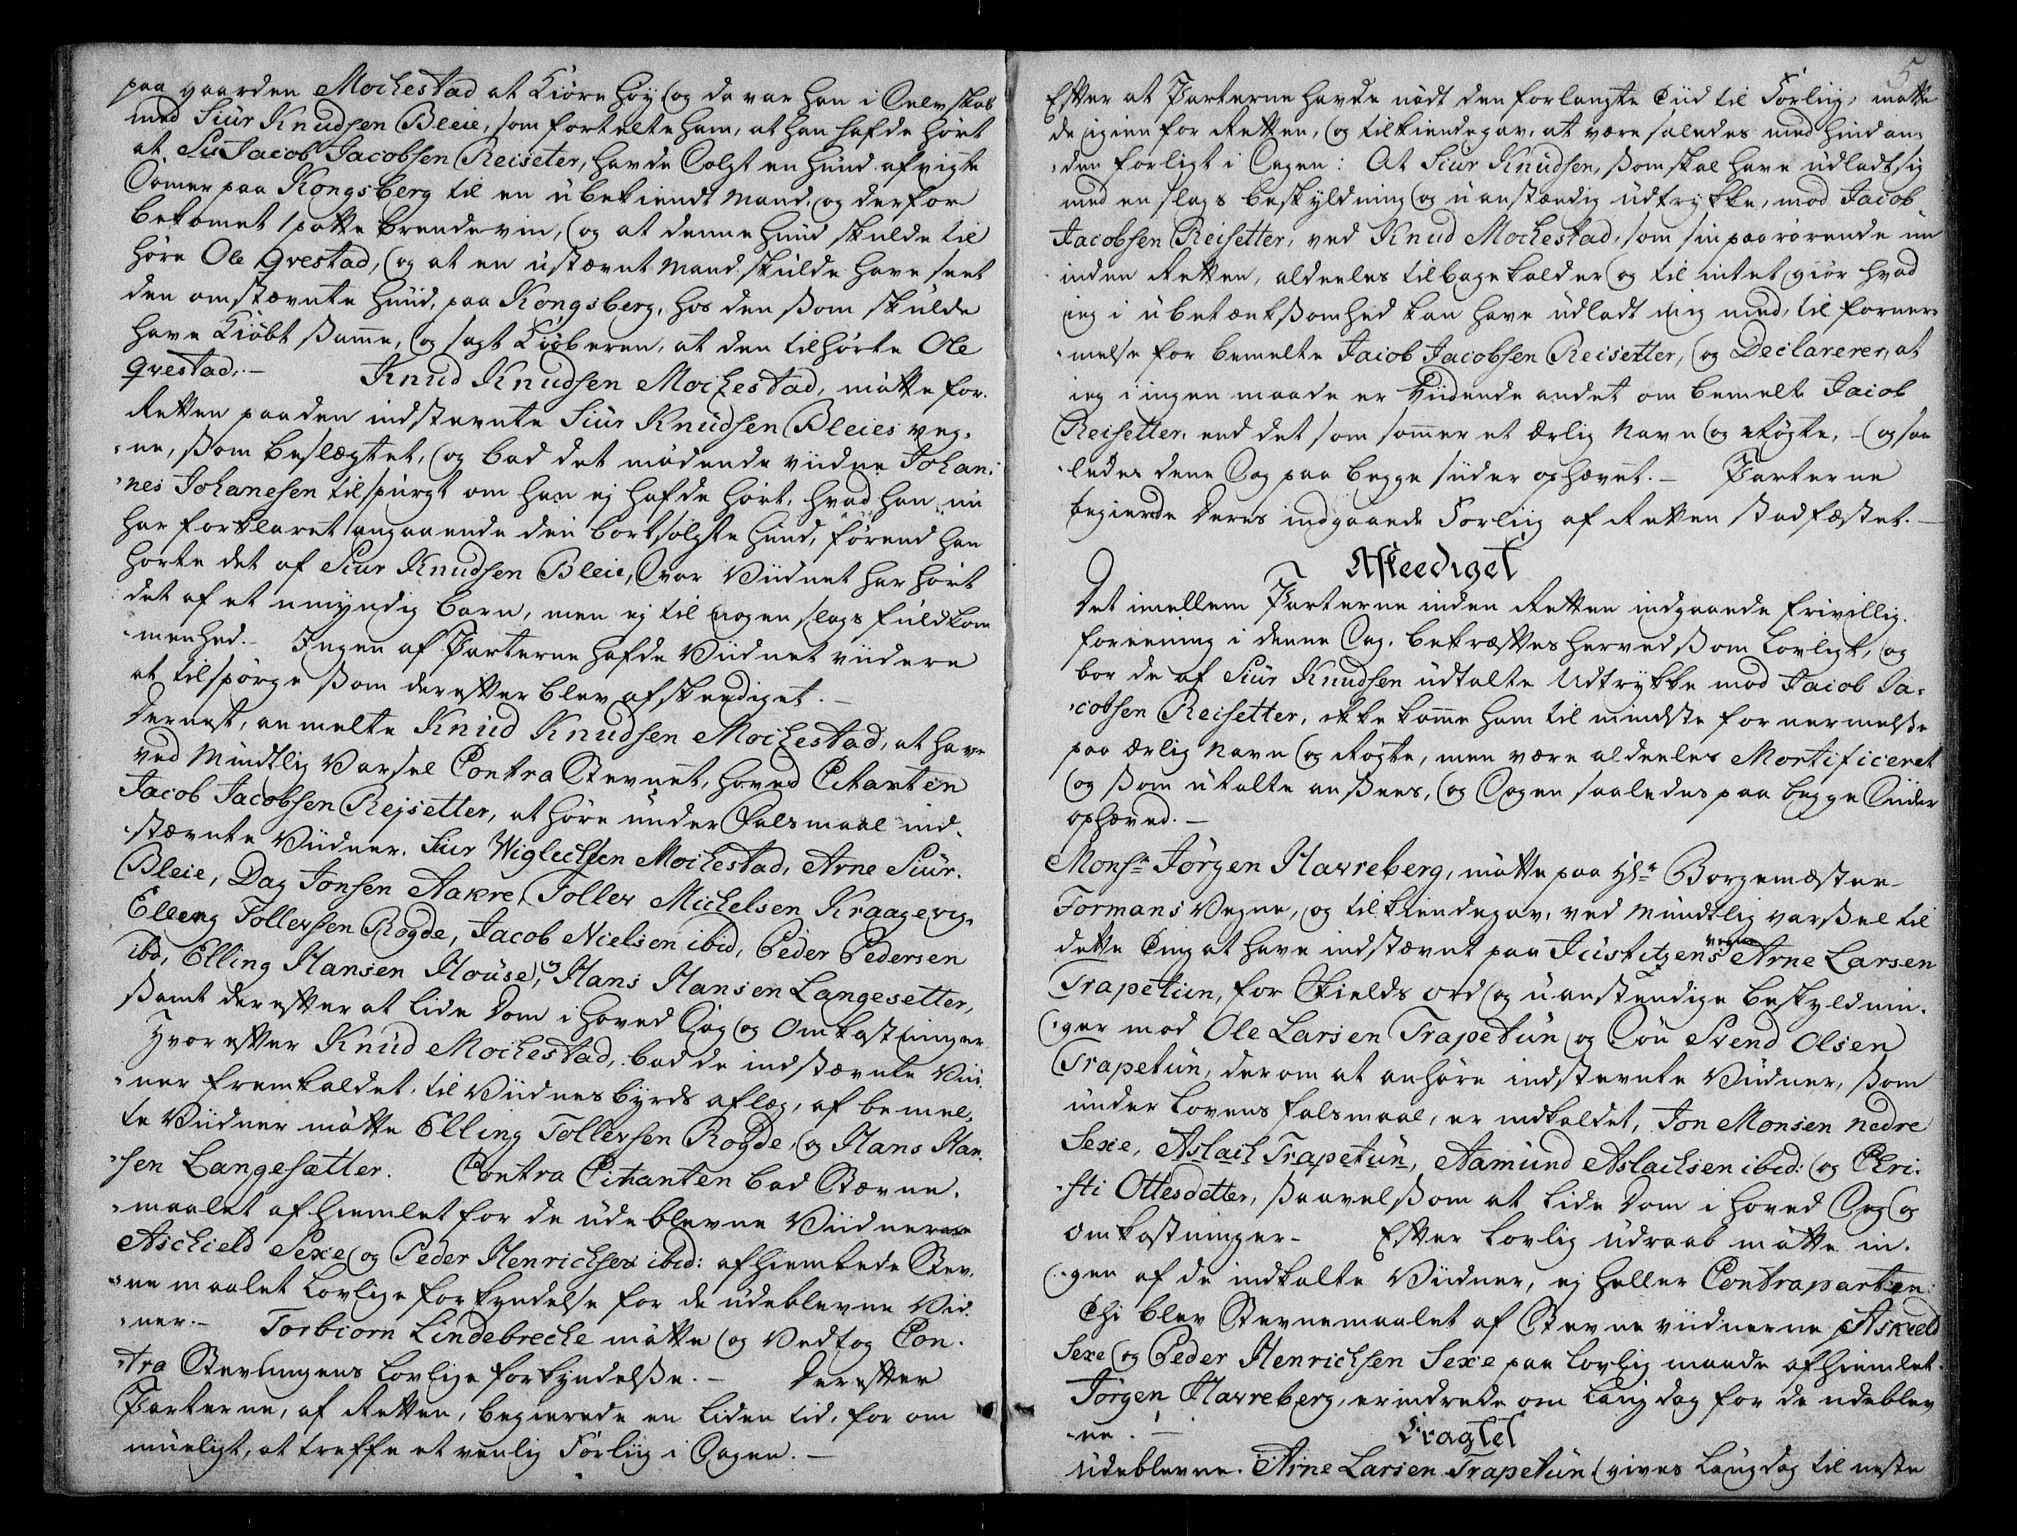 paa gaarden Mochestad at Kiøre Høy (og da var han i Selvskab
med Siur Knudsen Bleie, som fortelte ham, at han hafde hørt
at Jacob Jacobsen Reiseter, havde Solgt en hund afvigte
Somer paa Kongsberg til en ubekiendt Mand, og derfor
bekomet 1 potte brendeviin, (og at denne hund skulde til
høre Ole Qvestad, (og at en ustævnt Mand skulde have seet
den omstævnte hund, paa Kongsberg, hos den som skulde
have Kiøbt samme, (og sagt Kiøberen, at den tilhørte Ole
Qvestad. - Knud Knudsen Mochestad, møtte for
Retten paa den indstevnte Siur Knudsen Bleies veg,
ne, som beslægtet, (og bad det mødende viidne Johan,
nes Johanesen tilspurgt om han ej hafde hørt, hvad han nu
har forklaret angaaende den bortsolgte hund, førend han
hørte det af Siur Knudsen Bleie, Svar Viidnet har hørt
det af et umyndig barn, men ej til nogen slags fuldkom
menhed. - Ingen af Parterne hafde Viidnet viidere
at tilspørge som derefter blev afskeediget. -
Dernest, anmelte Knud Knudsen Mochestad, at have
ved Mundtlig Varsel Contra Stevnet, hoved Citanten
Jacob Jacobsen Rejsetter, at høre under Falsmaal ind,
stævnte Viidner. Siur Wiglechsen Mochestad, Arne Siur.
Bleie, Dag Jonsen Aakre, Toller Michelsen Kraagevig,
Elleng Tollevsen Rogde, Jacob Nielsen ibid, Peder Pedersen
ibd, Elling Hansen House, og Hans Hansen Langesetter,
samt derefter at lide Dom i hoved Sag (og Omkostninger
Hvorefter Knud Mochestad, bad de indstævnte Vii
ner fremkaldet til Viidnesbyrds aflæg, af bemel,
te Viidner møtte Elling Tollevsen Rogde, og Hans Han
sen Langesætter. Contra Citanten bad Stævne,
maalet afhiemlet for de udeblevne Viidner
Aschield Sexe (og Peder Henrichsen ibid: afhiemlede Stev,
ne maalet lovlige forkyndelse for de udeblevne Vid,
ner. - Torbiorn Lindebreche møtte (og Vedtog Con,
tra Stevningens lovlige forkyndelse. - Derefter
Parterne, af Retten, begierede en liden tid, for om
mueligt, at treffe et venlig Forliig i Sagen. -
5
Efter at Parterne havde nødt den forlangte Tiid til Forliig, møtte
de igien for Retten, (og tilkiendegav, at være saledes med hinan,
den forligt i Sagen: At Siur Knudsen, som skal have udladt sig
med en slags beskyldning (og uanstændig udtrykke, mod Jacob
Jacobsen Reisetter, ved Knud Mochestad, som sin paarørende nu
inden Retten, aldeeles tilbage kalder (og til intet giør hvad
ieg i ubetænksomhed kan have udladt mig med, til forner,
melse for bemelte Jacob Jacobsen Reisetter, (og Declarerer, at
ieg i ingen maade er Viidende andet om bemelte Jacob
Reisetter, end det som sømmer et ærlig Navn (og Røgte, - (og saa
ledes dene Sag paa begge siider ophævet. - Parterne
begierde deres indgaaende Forliig af Retten stadfæstet. -
Afskeediget
Det imellem Parterne inden Retten indgaaende frivillig
foreening i denne Sag, bekræftes herved som lovligt, (og
bør de af Siur Knudsen udtalte Udtrykke mod Jacob Ja,
cobsen Reisetter, ikke komme ham til mindste fornermelse
paa ærlig Navn (og Røgte, men være aldeeles Mortificeret
(og som utalte ansees, (og Sagen saaledes paa begge Siider
ophæved. -
Monsr Jørgen Havreberg, møtte paa Hr Borgemæster
Formans Vegne, og tilkiendegav, ved Mundtlig varsel til
dette Ting at have indstævnt paa Justitzens vegne Arne Larsen
Trapetun, for Skields ord (og uanstendige beskyldnin,
ger mod Ole Larsen Trapetun (og Søn Svend Olsen
Trapetun, derom at anhøre indstevnte Viidner, som
under Lovens falsmaal, er indkaldet, Jon Monsen nedre
Sexe, Aslach Trapetun, Aamund Aslachsen ibid: (og Chri,
sti Ottesdetter, saavel som at lide Dom i hoved Sag (og
omkostninger. - Efter Lovlig udraab møtte in,
gen af de indkalte Viidner, ej heller Contraparten.
Thi blev Stevnemaalet af Stevne viidnerne Askield
Sexe (og Peder Henrichsen Sexe paa lovlig maade afhiemlet.
Jørgen Havreberg, erindrede om laugdag for de udeblev
ne. - Eragtet
Udeblevne Arne Larsen Trapetun gives Laugdag til neste